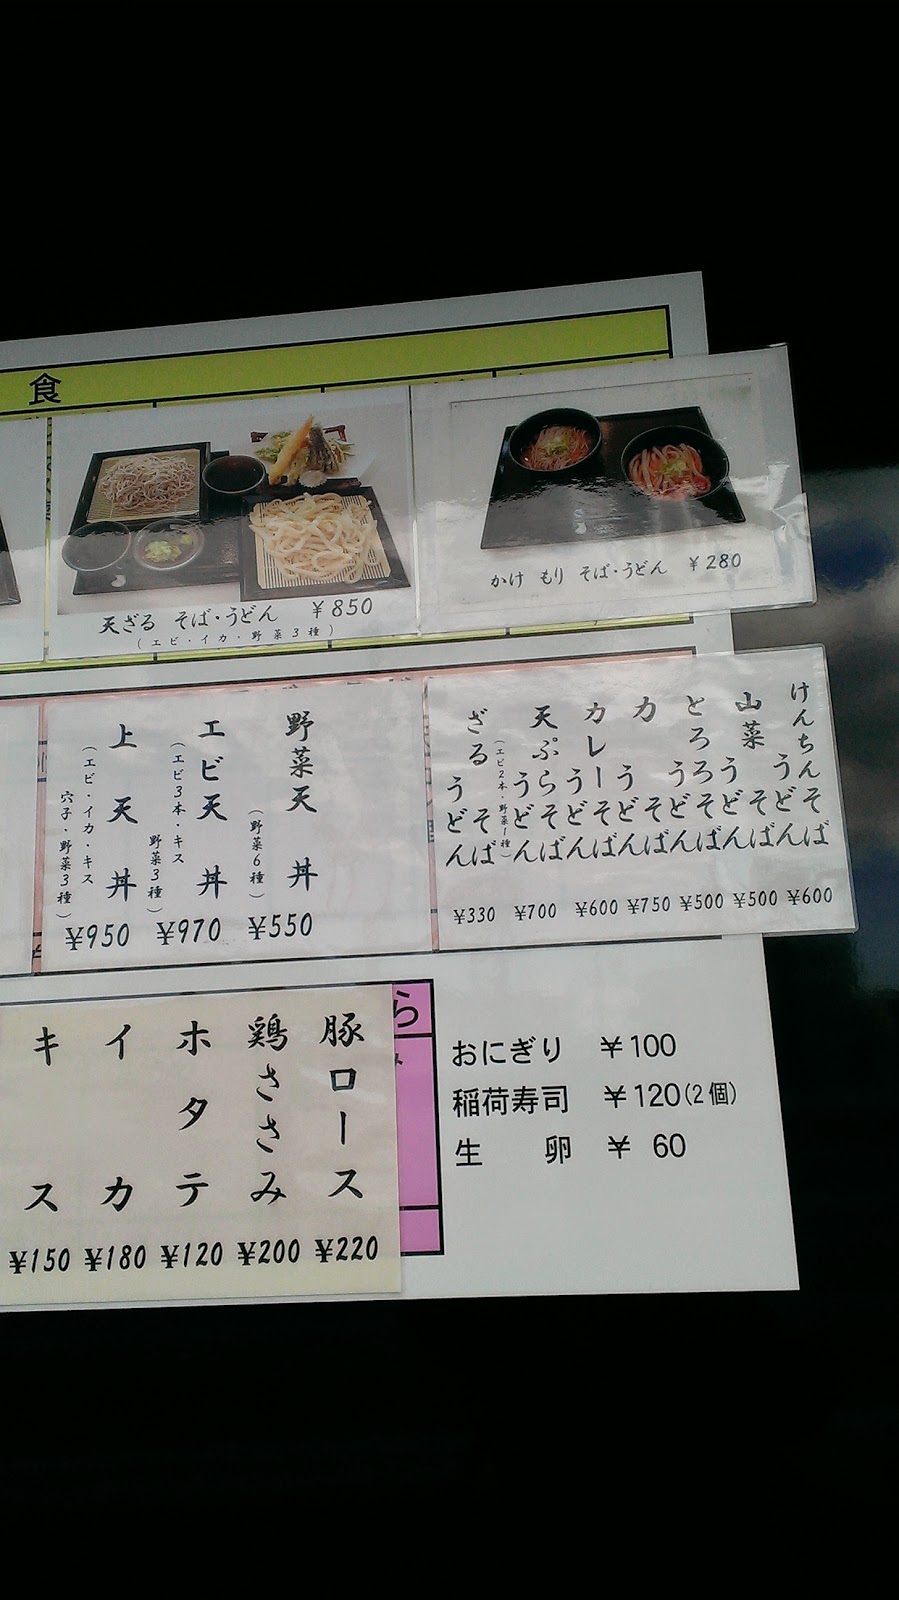 食
天ざる そば・うどん ¥850
(エビ・イカ・野菜3種)
かけ もり そば・うどん ¥280
けんちん そば うどん ¥600
山菜 そば うどん ¥500
とろろ そば うどん ¥500
カ そば うどん ¥750
カレー そば うどん ¥600
天ぷら そば うどん (エビ2本・野菜1種) ¥700
ざる そば うどん ¥330
野菜天丼 (野菜6種) ¥550
エビ天丼 (エビ3本・キス 野菜3種) ¥970
上天丼 (エビ・イカ・キス 穴子・野菜3種) ¥950
ら
豚ロース ¥220
鶏ささみ ¥200
ホタテ ¥120
イカ ¥180
キス ¥150
おにぎり ¥100
稲荷寿司 ¥120(2個)
生卵 ¥ 60